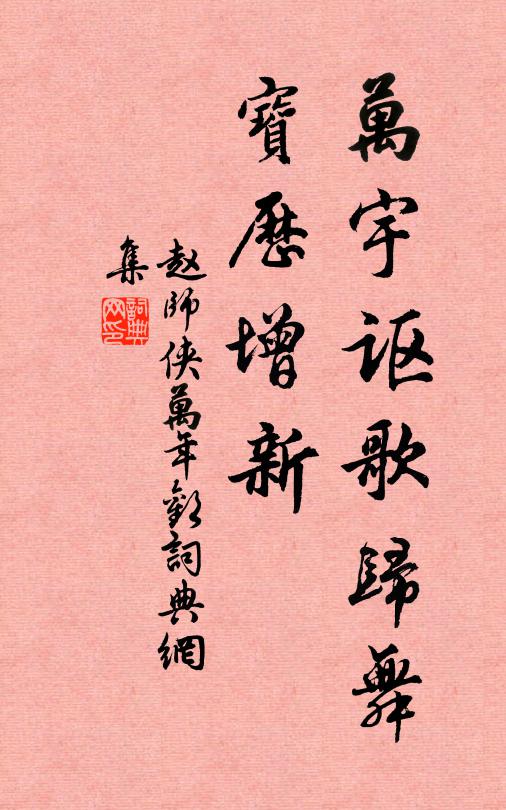 萬宇謳歌歸舜
寶歷增新
赵師侠萬年歡詞典網
集
詞典网印